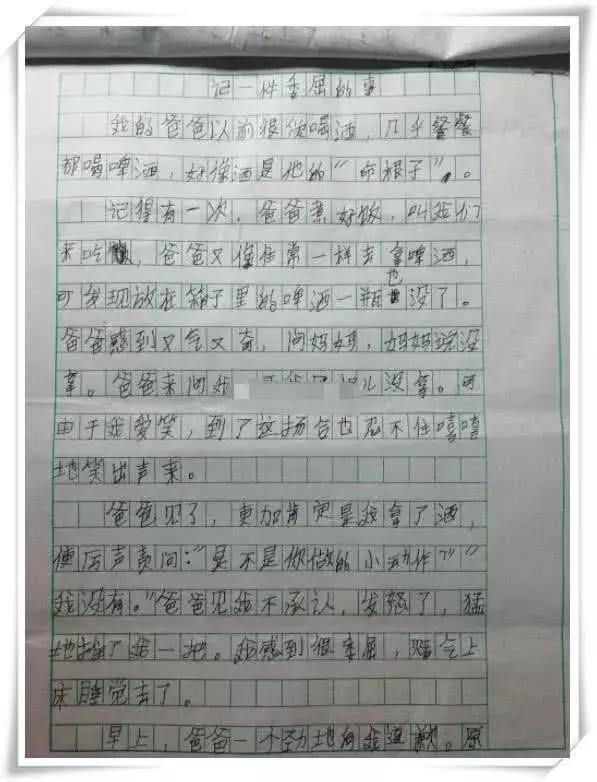 记一件委屈的事
我的爸爸以前很喜喝酒，几乎餐餐
都喝啤酒，好像酒是他的“命根子”。
记得有一次，爸爸煮好饭，叫我们
来吃，爸爸又像往常一样去拿啤酒，
可发现放在箱子里的啤酒一瓶也没了。
爸爸感到又气又奇，问妈妈，妈妈说没
拿。爸爸来问我没拿。可
由于我爱笑，到了这场合也忍不住嘻嘻
地笑出声来。
爸爸见了，更加肯定是我拿了酒，
便厉声责问：“是不是你做的小动作？”“
我没有。”爸爸见我不承认，发怒了，猛
地推了我一把。我感到很委屈，赌气上
床睡觉去了。
早上，爸爸一个劲地向我道歉。原